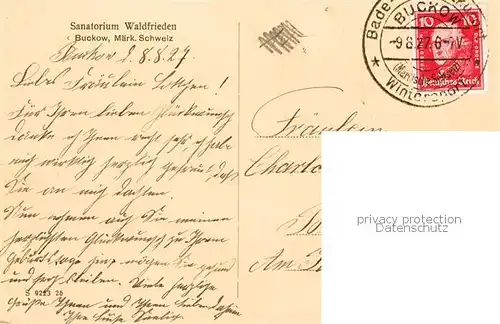 Sanatorium Waldfrieden
Buckow, Märk. Schweiz
Buckow d. 8.8.27
Liebes Fräulein Lottchen!
Für Ihren lieben Glückwunsch
danke ich Ihnen recht sehr, ich habe
mich wirklich herzlich gefreut, daß
Sie an mich dachten.
Nun nehmen auch Sie meinen
herzlichsten Glückwunsch zu Ihrem
Geburtstage hin, mögen Sie gesund
und froh bleiben. Viele herzliche
Grüße Ihnen und Ihren lieben
Ihre Luise
S 9223 26
Bade
BUCKOW
-9.8.27.6-7V.
(Märkische Schweiz)
Winterspor
10 10
Deutsches Reich
Fräulein
Charlo
Am
privacy protection
Datenschutz